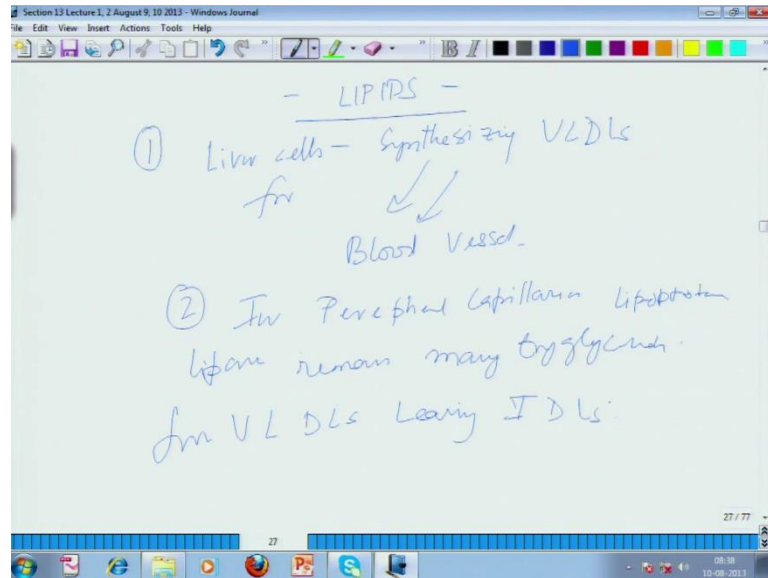 Section 13 Lecture 1, 2 August 9, 10 2013 - Windows Journal
File Edit View Insert Actions Tools Help
B I
- LIPIDS -
① Liver cells - Synthesizing VLDLs
for
Blood Vessel.
② In Peripheral Capillaries lipoprotein
lipase remove many tryglycerides.
from VLDLs Leaving IDLs.
27 / 77
27
08:38
10-08-2013